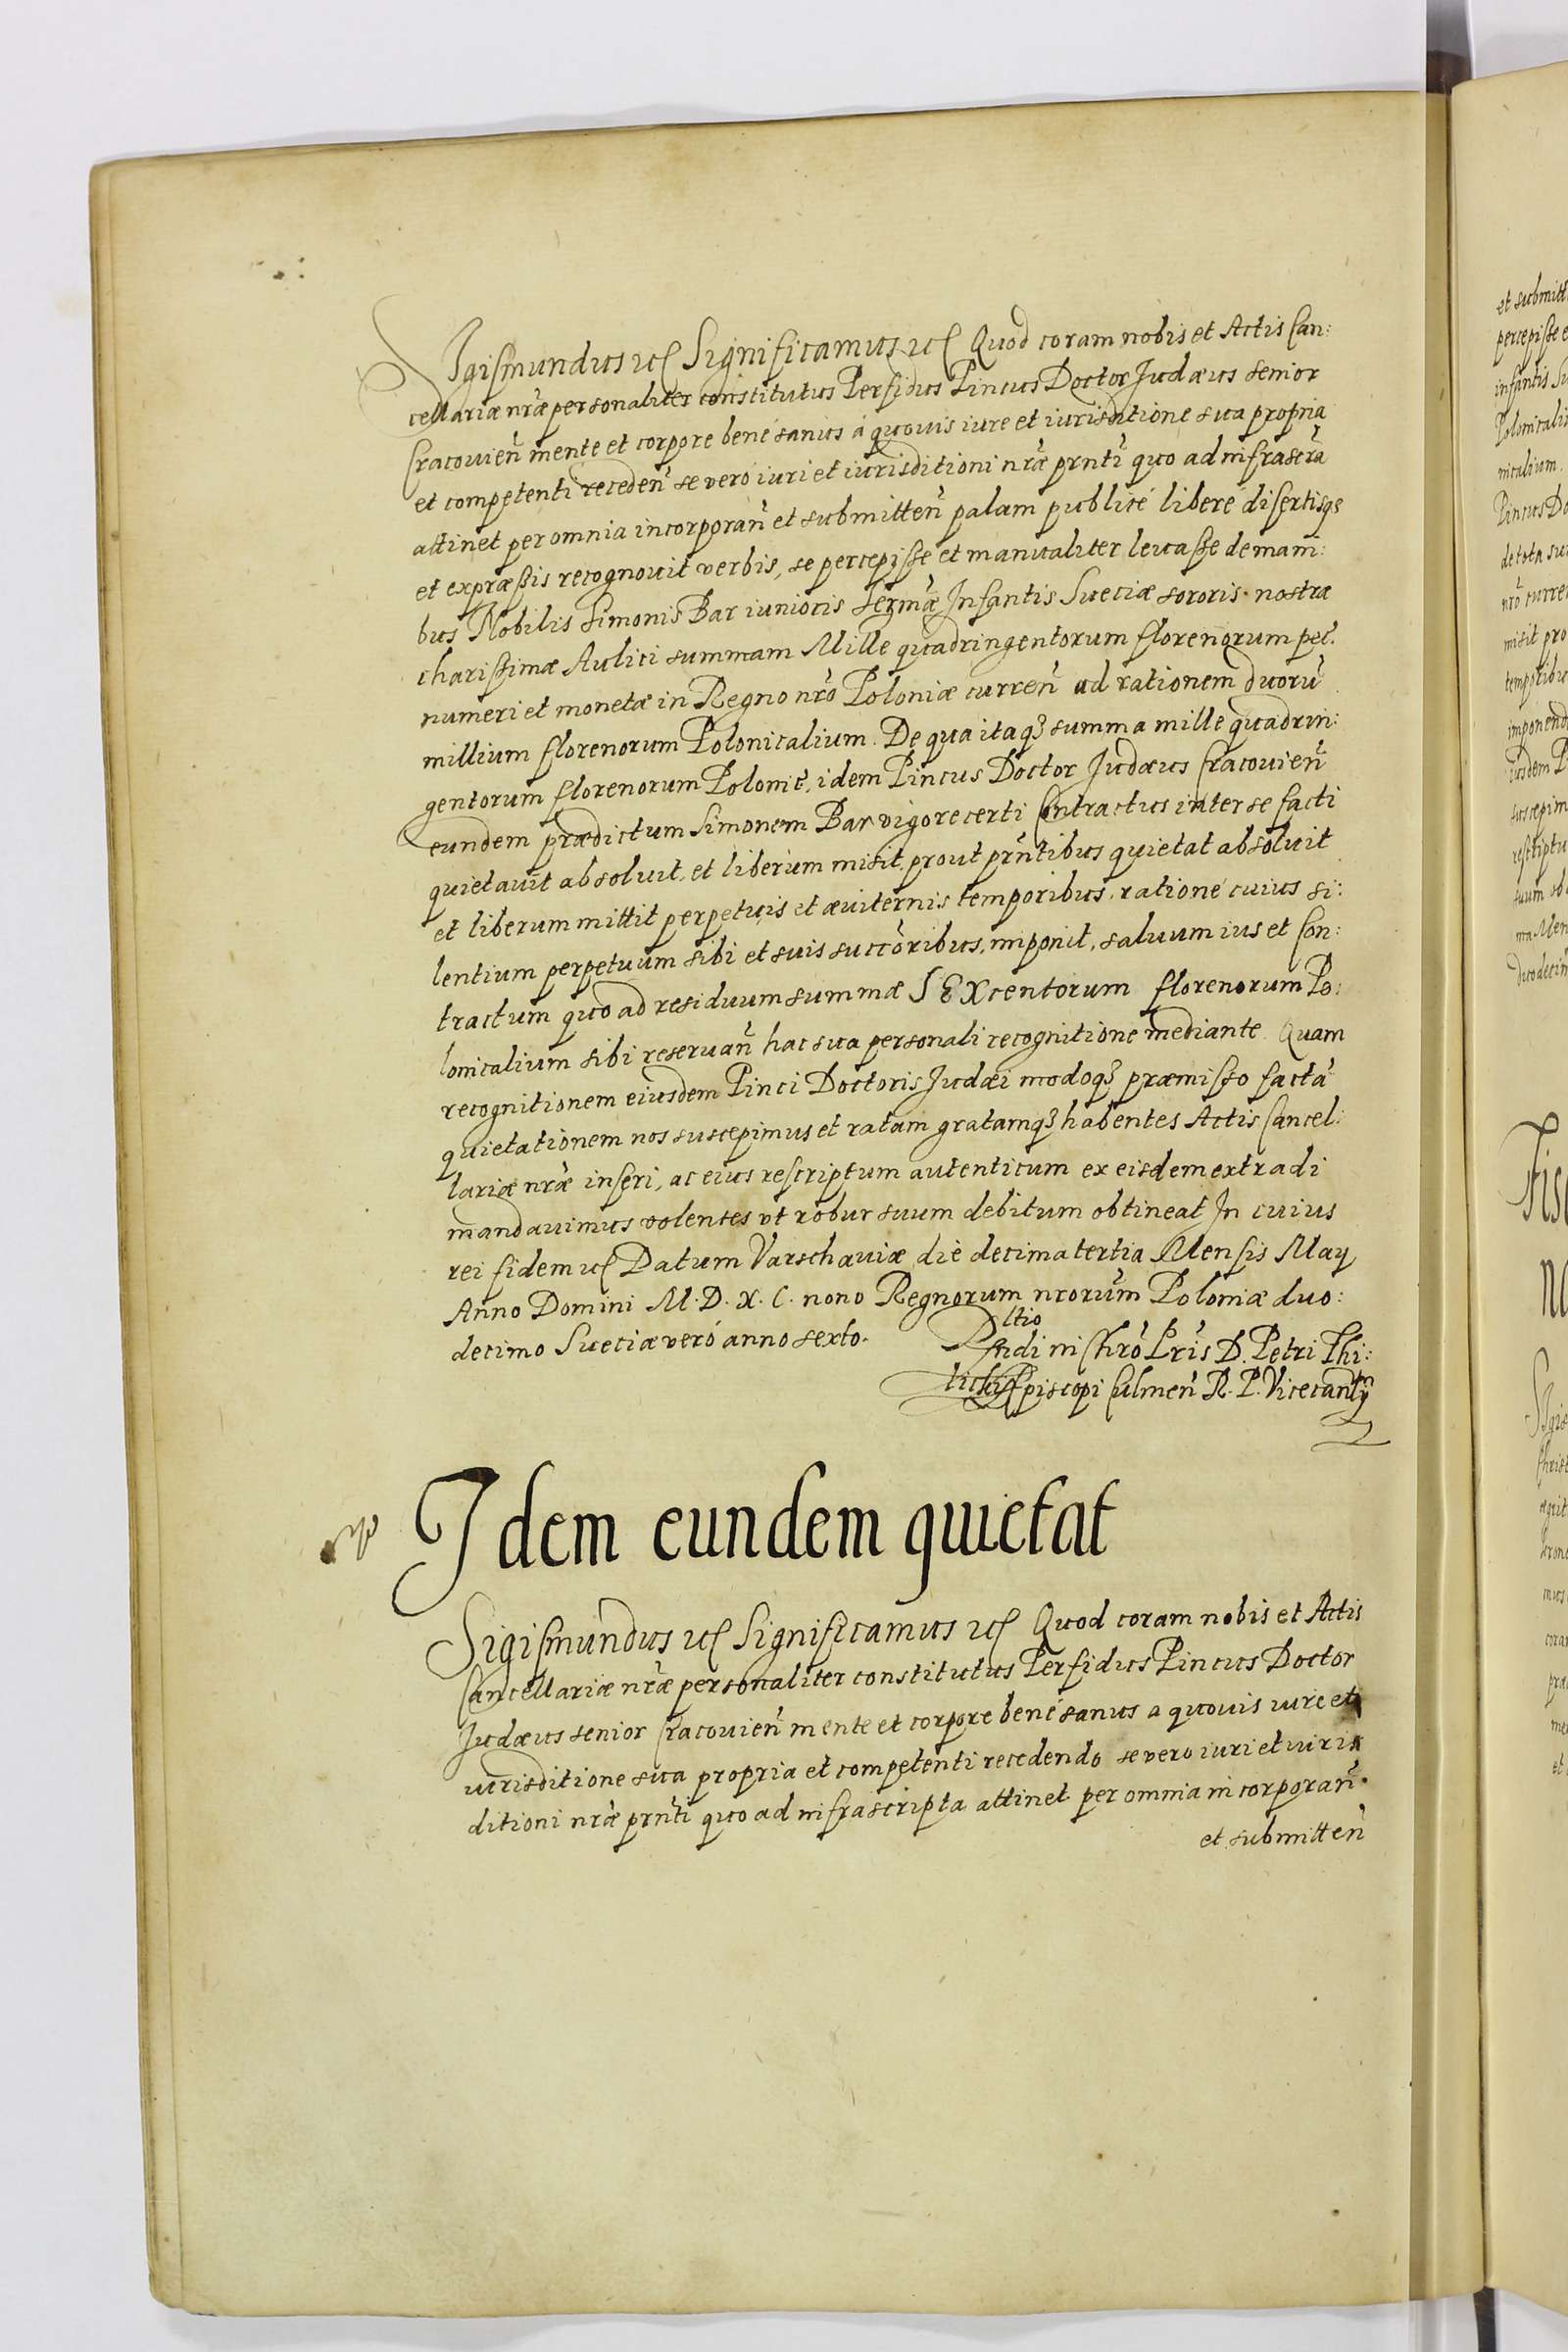 Sigismundus etc Significamus etc Quod coram nobis et Actis Can:
cellariæ nr̃æ personaliter constitutus Perfidus Pincus Doctor Judæus senior
Cracovien̄ mente et corpore bené sanus á quovis iure et iurisditione sua propria
et competenti receden̄ se veró iuri et iurisditioni nr̃æ prn̄ti quo ad infrascr̄a
attinet per omnia incorporan̄ et submitten̄ palam publicé liberé disertisqȝ
et expræssis recognovit verbis, se percepisse et manualiter levasse de mani:
bus Nobilis Simonis Bar iunioris Serm̄æ Infantis Sueciæ sororis nostræ
charissimæ Aulici summam Mille quadringentorum florenorum pec̄.
numeri et monetæ in Regno nr̄o Poloniæ curren̄ ad rationem duorū
millium florenorum Polonicalium. De qua itaqȝ summa mille quadrin:
gentorum florenorum Polonic̄, idem Pincus Doctor Judæus Cracovien̄
eundem prædictum Simonem Bar vigore certi Contractus inter se facti
quietavit absolvit, et liberum misit, prout prn̄tibus quietat absolvit
et liberum mittit perpetuis et æviternis temporibus, rationé cuius si:
lentium perpetuum sibi et suis succ̄oribus, imponit, salvum ius et Con:
tractum quo ad residuum summæ SEXcentorum florenorum Po:
lonicalium sibi reservan̄ hac sua personali recognitione mediante. Quam
recognitionem eiusdem Pinci Doctoris Judæi modoqȝ præmisso factā
quietationem nos suscepimus et ratam gratamqȝ habentes Actis Cancel:
lariæ nr̄æ inseri, ac eius rescriptum autenticum ex eisdem extradi
mandavimus volentes vt robur suum debitum obtineat In cuius
rei fidem etc Datum Varschaviæ die decima tertia Mensis Maÿ
Anno Domini M. D. X. C. nono Regnorum nrorūm Poloniæ duo:
decimo Sueciæ veró anno sexto.
R̄ltio
Rn̄di in Chr̄o Pr̄is D. Petri Thi:
licki Episcopi Culmen̄ R. P. Vicecanlrÿ
Idem eundem quietat
Sigismundus etc Significamus etc Quod coram nobis et Actis
Cancellariæ nr̄æ personaliter constitutus Perfidus Pincus Doctor
Judæus senior Cracovien̄ mente et corpore bené sanus a quovis iure et
iurisditione sua propria et competenti recedendo se vero iuri et iuris
ditioni nr̄æ prn̄ti quo ad infrascripta attinet per omnia incorporan̄
et submitten̄